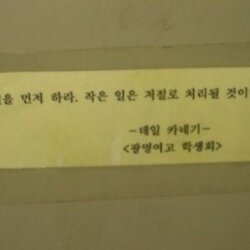 을 먼저 하라. 작은 일은 저절로 처리될 것이
-데일 카네기-
<광명여고 학생회>